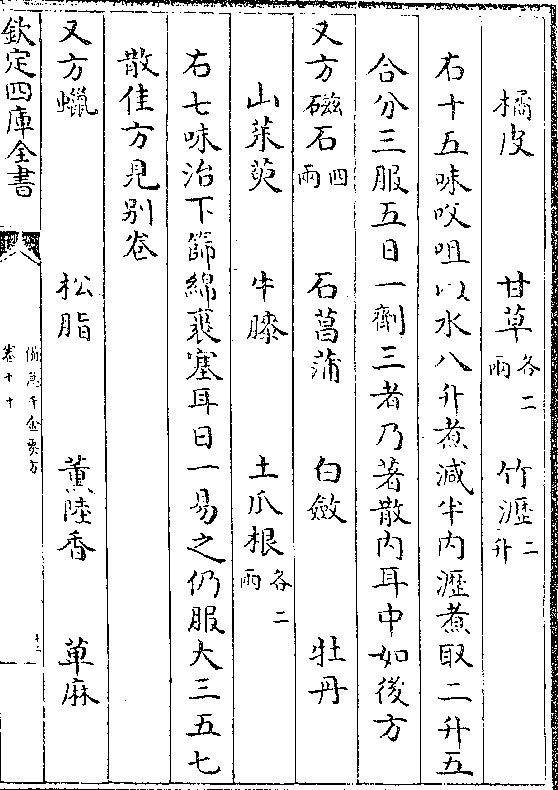 橘皮 甘草各二兩 竹瀝二升
右十五味㕮咀以水八升煮減半内瀝煮取二升五
合分三服五日一劑三者乃著散内耳中如後方
又方磁石四兩 石菖蒲 白斂 牡丹
山茱萸 牛膝 土瓜根各二兩
右七味治下篩綿裹塞耳日一易之仍服大三五七
散佳方見别卷
又方蠟 松脂 薰陸香 萆麻
欽定四庫全書
備急千金要方
卷十十